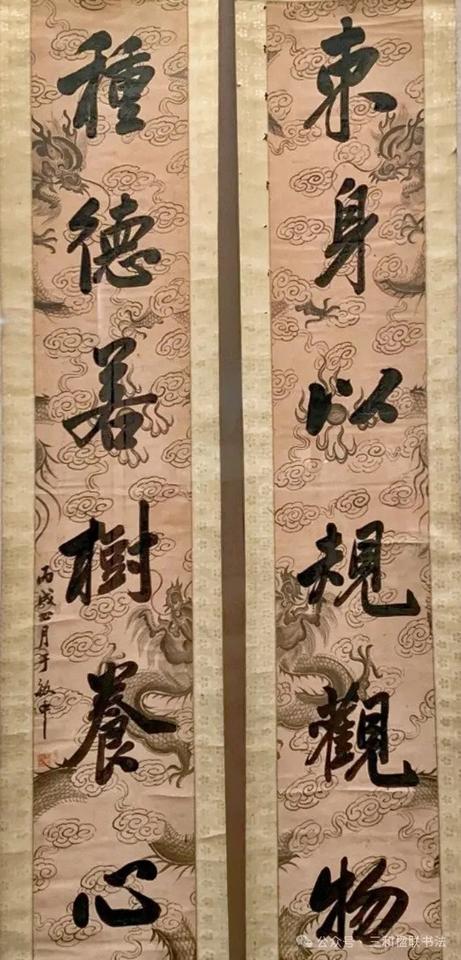 束身以規觀物
種德若樹養心
丙戌正月于敏中
公众号 · 三和楹联书法